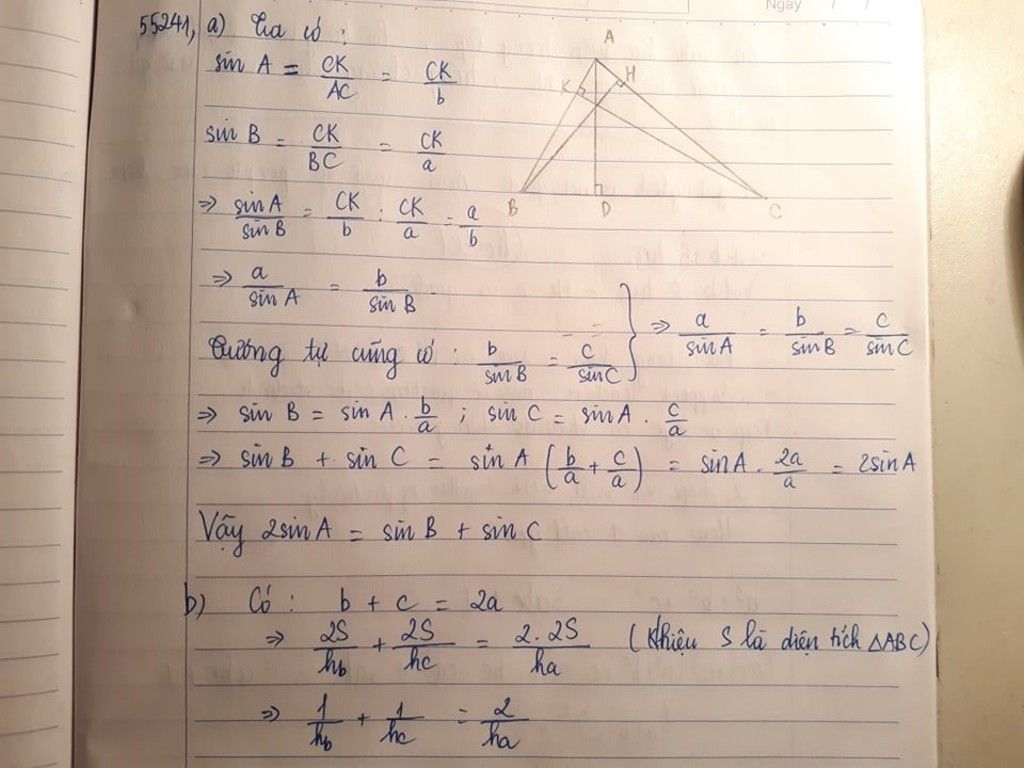 Ngày / /
55241, a) Ta có :
sin A = CK/AC = CK/b
sin B = CK/BC = CK/a
A
K
H
B
D
C
=> sin A/sin B = CK/b : CK/a = a/b
=> a/sin A = b/sin B
Tương tự cũng có : b/sin B = c/sin C } => a/sin A = b/sin B = c/sin C
=> sin B = sin A . b/a ; sin C = sin A . c/a
=> sin B + sin C = sin A (b/a + c/a) = sin A . 2a/a = 2sin A
Vậy 2sin A = sin B + sin C
b) Có : b + c = 2a
=> 2S/hb + 2S/hc = 2.2S/ha (Khiệu S là diện tích △ABC)
=> 1/hb + 1/hc = 2/ha